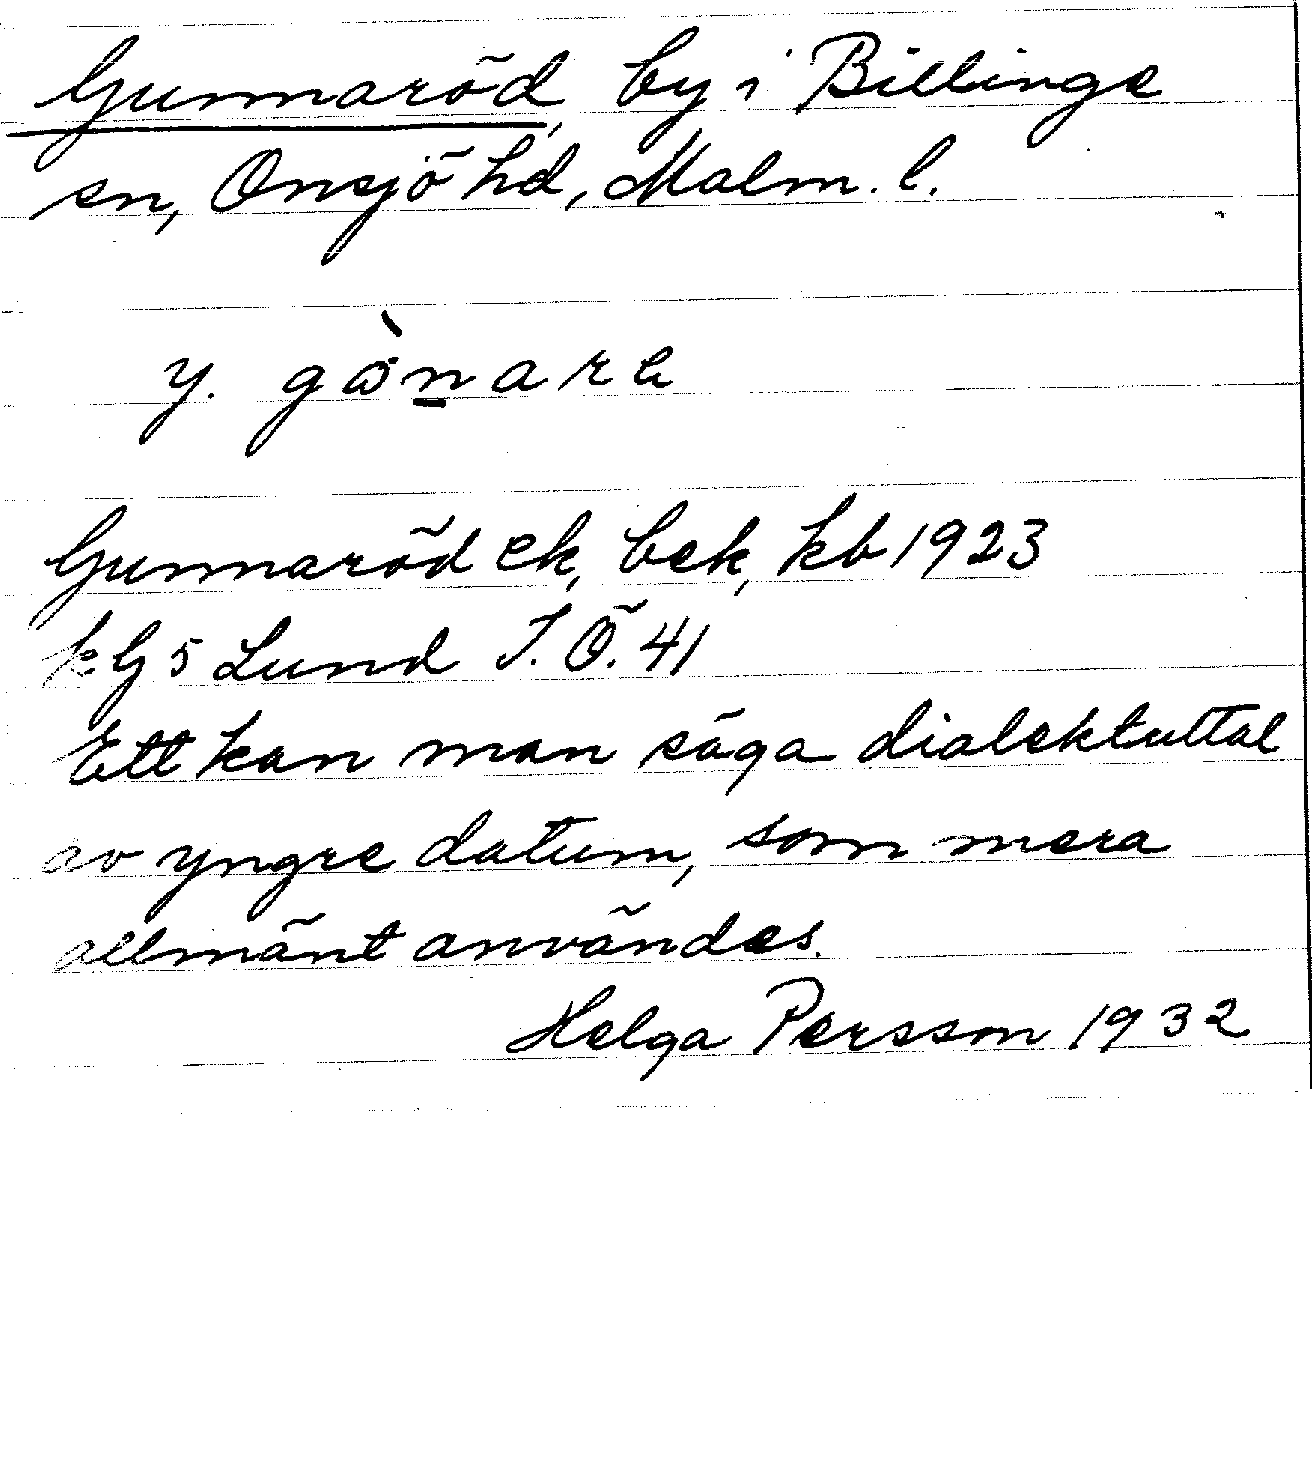 Gunnaröd, by i Billinge
sn, Onsjö hd, Malm. l.
y. gònara
Gunnaröd ek, bek, kb 1923
k G 5 Lund S. Ö. 41
Ett kan man säga dialektuttal
av yngre datum, som mera
allmänt användes.
Helga Persson 1932